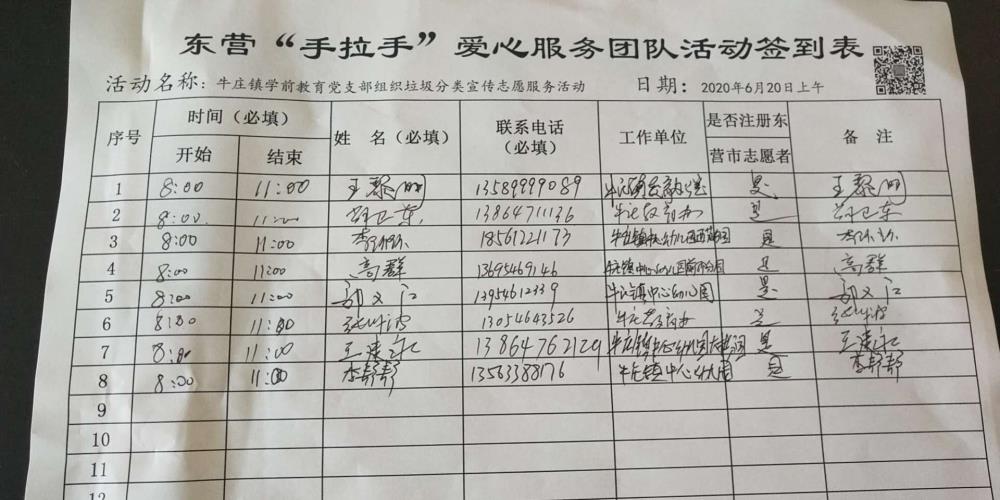 东营“手拉手”爱心服务团队活动签到表
活动名称：牛庄镇学前教育党支部组织垃圾分类宣传志愿服务活动 日期：2020年6月20日上午
序号 时间（必填） 姓 名（必填） 联系电话（必填） 工作单位 是否注册东营市志愿者 备 注
开始 结束
1 8:00 11:00 王 13589999089 是 王
2 8:00 11:00 13864711136 是
3 8:00 11:00 李 18561221173 是 李
4 8:00 11:00 高群 13695469146 牛庄镇中心幼儿园 是 高群
5 8:00 11:00 13954612339 牛庄镇中心幼儿园 是
6 8:00 11:00 张 13054643526 是 张
7 8:00 11:00 王 13864762129 牛庄镇中心幼儿园 是 王
8 8:00 11:00 李帮帮 13563388176 牛庄镇中心幼儿园 是 李帮帮
9
10
11
12